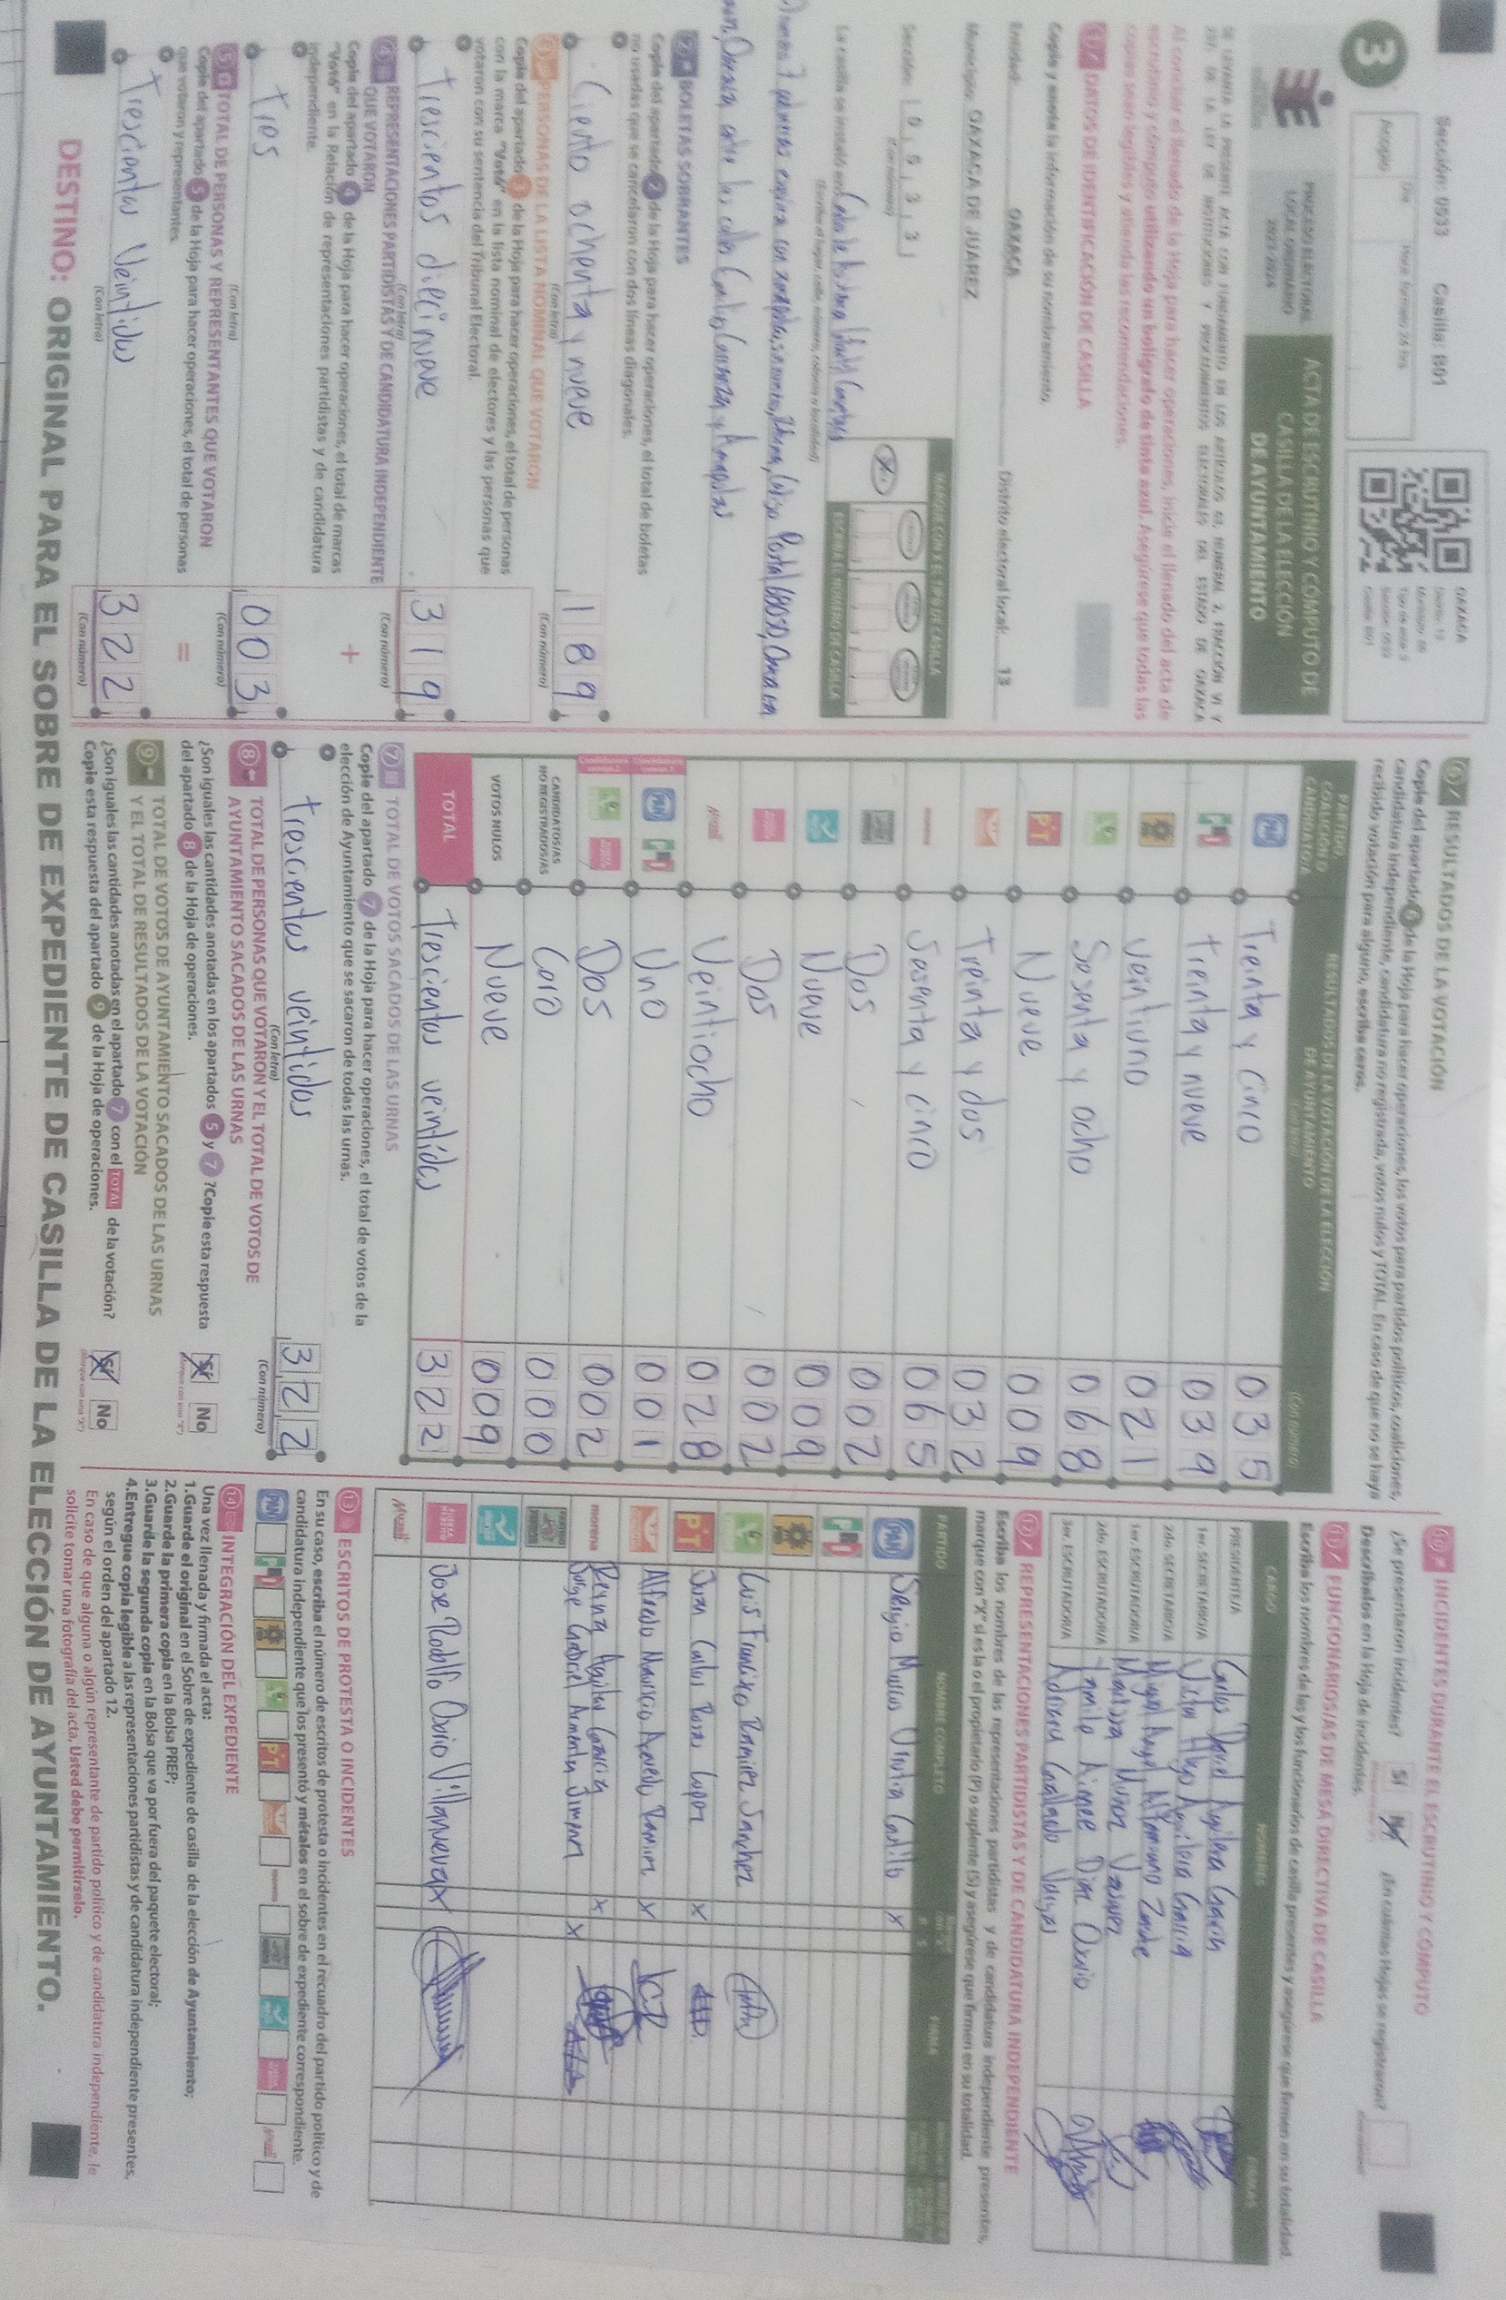 Sección: 0533 Casilla: B01
3
Acopio
Día
Hora: formato 24 hrs.
OAXACA
PROCESO ELECTORAL
LOCAL ORDINARIO
2023-2024
ACTA DE ESCRUTINIO Y CÓMPUTO DE
CASILLA DE LA ELECCIÓN
DE AYUNTAMIENTO
Al concluir el llenado de la Hoja para hacer operaciones, inicie el llenado del acta de
escrutinio y cómputo utilizando un bolígrafo de tinta azul. Asegúrese que todas las
copias sean legibles y atienda las recomendaciones.
1 DATOS DE IDENTIFICACIÓN DE CASILLA
Copie y anote la información de su nombramiento.
Entidad: OAXACA Distrito electoral local: 13
Municipio: OAXACA DE JUÁREZ
Sección: 0 5 3 3
(Con número)
MARQUE CON X EL TIPO DE CASILLA
ESCRIBA EL NÚMERO DE CASILLA
La casilla se instaló en:
(Escriba el lugar, calle, número, colonia o localidad)
2 BOLETAS SOBRANTES
Copie del apartado 2 de la Hoja para hacer operaciones, el total de boletas
no usadas que se cancelaron con dos líneas diagonales.
Ciento ochenta y nueve 1 8 9
(Con letra) (Con número)
3 PERSONAS DE LA LISTA NOMINAL QUE VOTARON
Copie del apartado 3 de la Hoja para hacer operaciones, el total de personas
con la marca "Votó" en la lista nominal de electores y las personas que
votaron con su sentencia del Tribunal Electoral.
Trescientos diecinueve 3 1 9
(Con letra) (Con número)
4 REPRESENTACIONES PARTIDISTAS Y DE CANDIDATURA INDEPENDIENTE
QUE VOTARON
Copie del apartado 4 de la Hoja para hacer operaciones, el total de marcas
"Votó" en la Relación de representaciones partidistas y de candidatura
independiente.
+
Tres 0 0 3
(Con letra) (Con número)
5 TOTAL DE PERSONAS Y REPRESENTANTES QUE VOTARON
Copie del apartado 5 de la Hoja para hacer operaciones, el total de personas
que votaron y representantes.
=
Trescientos Veintidos 3 2 2
(Con letra) (Con número)
6 RESULTADOS DE LA VOTACIÓN
Copie del apartado 6 de la Hoja para hacer operaciones, los votos para partidos políticos, coaliciones,
candidatura independiente, candidatura no registrada, votos nulos y TOTAL. En caso de que no se haya
recibido votación para alguno, escriba ceros.
PARTIDO
COALICIÓN O
CANDIDATO/A
RESULTADOS DE LA VOTACIÓN DE LA ELECCIÓN
DE AYUNTAMIENTO
(Con letra)
(Con número)
PAN Treinta y Cinco 0 3 5
PRI treinta y nueve 0 3 9
veintiuno 0 2 1
Sesenta y ocho 0 6 8
PT Nueve 0 0 9
Treinta y dos 0 3 2
Sesenta y cinco 0 6 5
Dos 0 0 2
Nueve 0 0 9
Dos 0 0 2
Veintiocho 0 2 8
PAN PRI Uno 0 0 1
Dos 0 0 2
CANDIDATOS/AS
NO REGISTRADOS/AS Cero 0 0 0
VOTOS NULOS Nueve 0 0 9
TOTAL Trescientos veintidos 3 2 2
7 TOTAL DE VOTOS SACADOS DE LAS URNAS
Copie del apartado 7 de la Hoja para hacer operaciones, el total de votos de la
elección de Ayuntamiento que se sacaron de todas las urnas.
trescientos veintidos 3 2 2
(Con letra) (Con número)
8 TOTAL DE PERSONAS QUE VOTARON Y EL TOTAL DE VOTOS DE
AYUNTAMIENTO SACADOS DE LAS URNAS
¿Son iguales las cantidades anotadas en los apartados 5 y 7? Copie esta respuesta
del apartado 8 de la Hoja de operaciones.
Sí No
9 TOTAL DE VOTOS DE AYUNTAMIENTO SACADOS DE LAS URNAS
Y EL TOTAL DE RESULTADOS DE LA VOTACIÓN
¿Son iguales las cantidades anotadas en el apartado 7 con el TOTAL de la votación?
Copie esta respuesta del apartado 9 de la Hoja de operaciones.
Sí No
10 INCIDENTES DURANTE EL ESCRUTINIO Y CÓMPUTO
¿Se presentaron incidentes? Sí No ¿En cuántas Hojas se registraron?
Descríbalos en la Hoja de incidentes.
11 FUNCIONARIOS/AS DE MESA DIRECTIVA DE CASILLA
Escriba los nombres de las y los funcionarios de casilla presentes y asegúrese que firmen en su totalidad.
CARGO NOMBRES FIRMAS
PRESIDENTE/A Carlos David Aguilera García
1er. SECRETARIO/A Victor Hugo Aguilera García
2do. SECRETARIO/A
1er. ESCRUTADOR/A Maritza
2do. ESCRUTADOR/A Yamile Aimee Diaz Osorio
3er. ESCRUTADOR/A Adriana Gallardo Vargas
12 REPRESENTACIONES PARTIDISTAS Y DE CANDIDATURA INDEPENDIENTE
Escriba los nombres de las representaciones partidistas y de candidatura independiente presentes,
marque con "X" si es la o el propietario (P) o suplente (S) y asegúrese que firmen en su totalidad.
PARTIDO NOMBRE COMPLETO FIRMA
PAN Sergio Castillo X
PRI
Luis Francisco Ramirez Sanchez
PT Juan Carlos Rosas Lopez X
Alfredo Mauricio Acevedo Ramirez X
morena Reyna Aguilar Garcia X
Jorge Gabriel Armenta Jimenez X
Jose Rodolfo Osorio Villanueva X
13 ESCRITOS DE PROTESTA O INCIDENTES
En su caso, escriba el número de escritos de protesta o incidentes en el recuadro del partido político y de
candidatura independiente que los presentó y métalos en el sobre de expediente correspondiente.
PAN PRI PT
14 INTEGRACIÓN DEL EXPEDIENTE
Una vez llenada y firmada el acta:
1.Guarde el original en el Sobre de expediente de casilla de la elección de Ayuntamiento;
2.Guarde la primera copia en la Bolsa PREP;
3.Guarde la segunda copia en la Bolsa que va por fuera del paquete electoral;
4.Entregue copia legible a las representaciones partidistas y de candidatura independiente presentes,
según el orden del apartado 12.
En caso de que alguna o algún representante de partido político y de candidatura independiente, le
solicite tomar una fotografía del acta, Usted debe permitírselo.
DESTINO: ORIGINAL PARA EL SOBRE DE EXPEDIENTE DE CASILLA DE LA ELECCIÓN DE AYUNTAMIENTO.